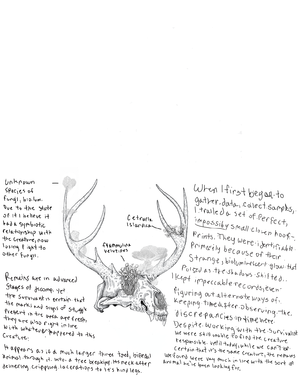 Unknown
species of
fungi, biolum.
Due to the state
of it I believe it
had a symbiotic
relationship with
the creature, now
losing fight to
other fungi.
Cetraria
Islandica
Flammulina
velutipes
Remains are in advanced
stages of decomp. Yet
the survivalist is certain that
the marks and signs of struggle
present in the area are fresh,
they are also right in line
with whatever happened to this
creature.
It appears as if a much larger three toed, bipedal
animal through it into a tree breaking its neck after
delivering crippling lacerations to its hind legs.
When I first began to
gather data, collect samples,
I trailed a set of perfect,
impossibly small cloven hoof-
prints. They were identifiable
primarily because of their
strange, bioluminescent glow that
as the shadows shifted.
I kept impeccable records, even
figuring out alternate ways of
keeping time after observing the
discrepancies in time here.
Despite working with the survivalist
we were still unable to find the creature
responsible. Well today, while we can't be
certain that it's the same creature, the remains
we found were very much in line with the sort of
animal we've been looking for.